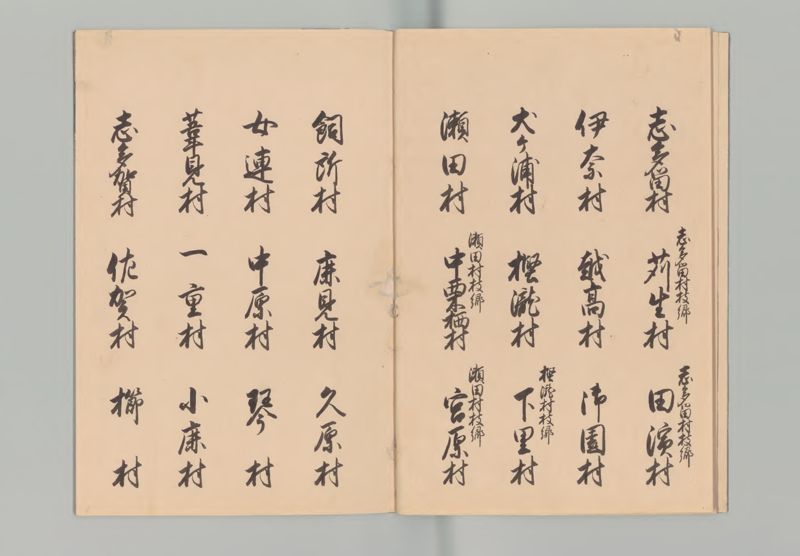 志多留村
志多留村枝郷
苅生村
志多留村枝郷
田濱村
伊奈村
越高村
御園村
犬ヶ浦村
樫瀧村
樫瀧村枝郷
下里村
瀬田村
瀬田村枝郷
中栗栖村
瀬田村枝郷
宮原村
飼所村
鹿見村
久原村
女連村
中原村
琴村
葦見村
一重村
小鹿村
志多賀村
佐賀村
櫛村